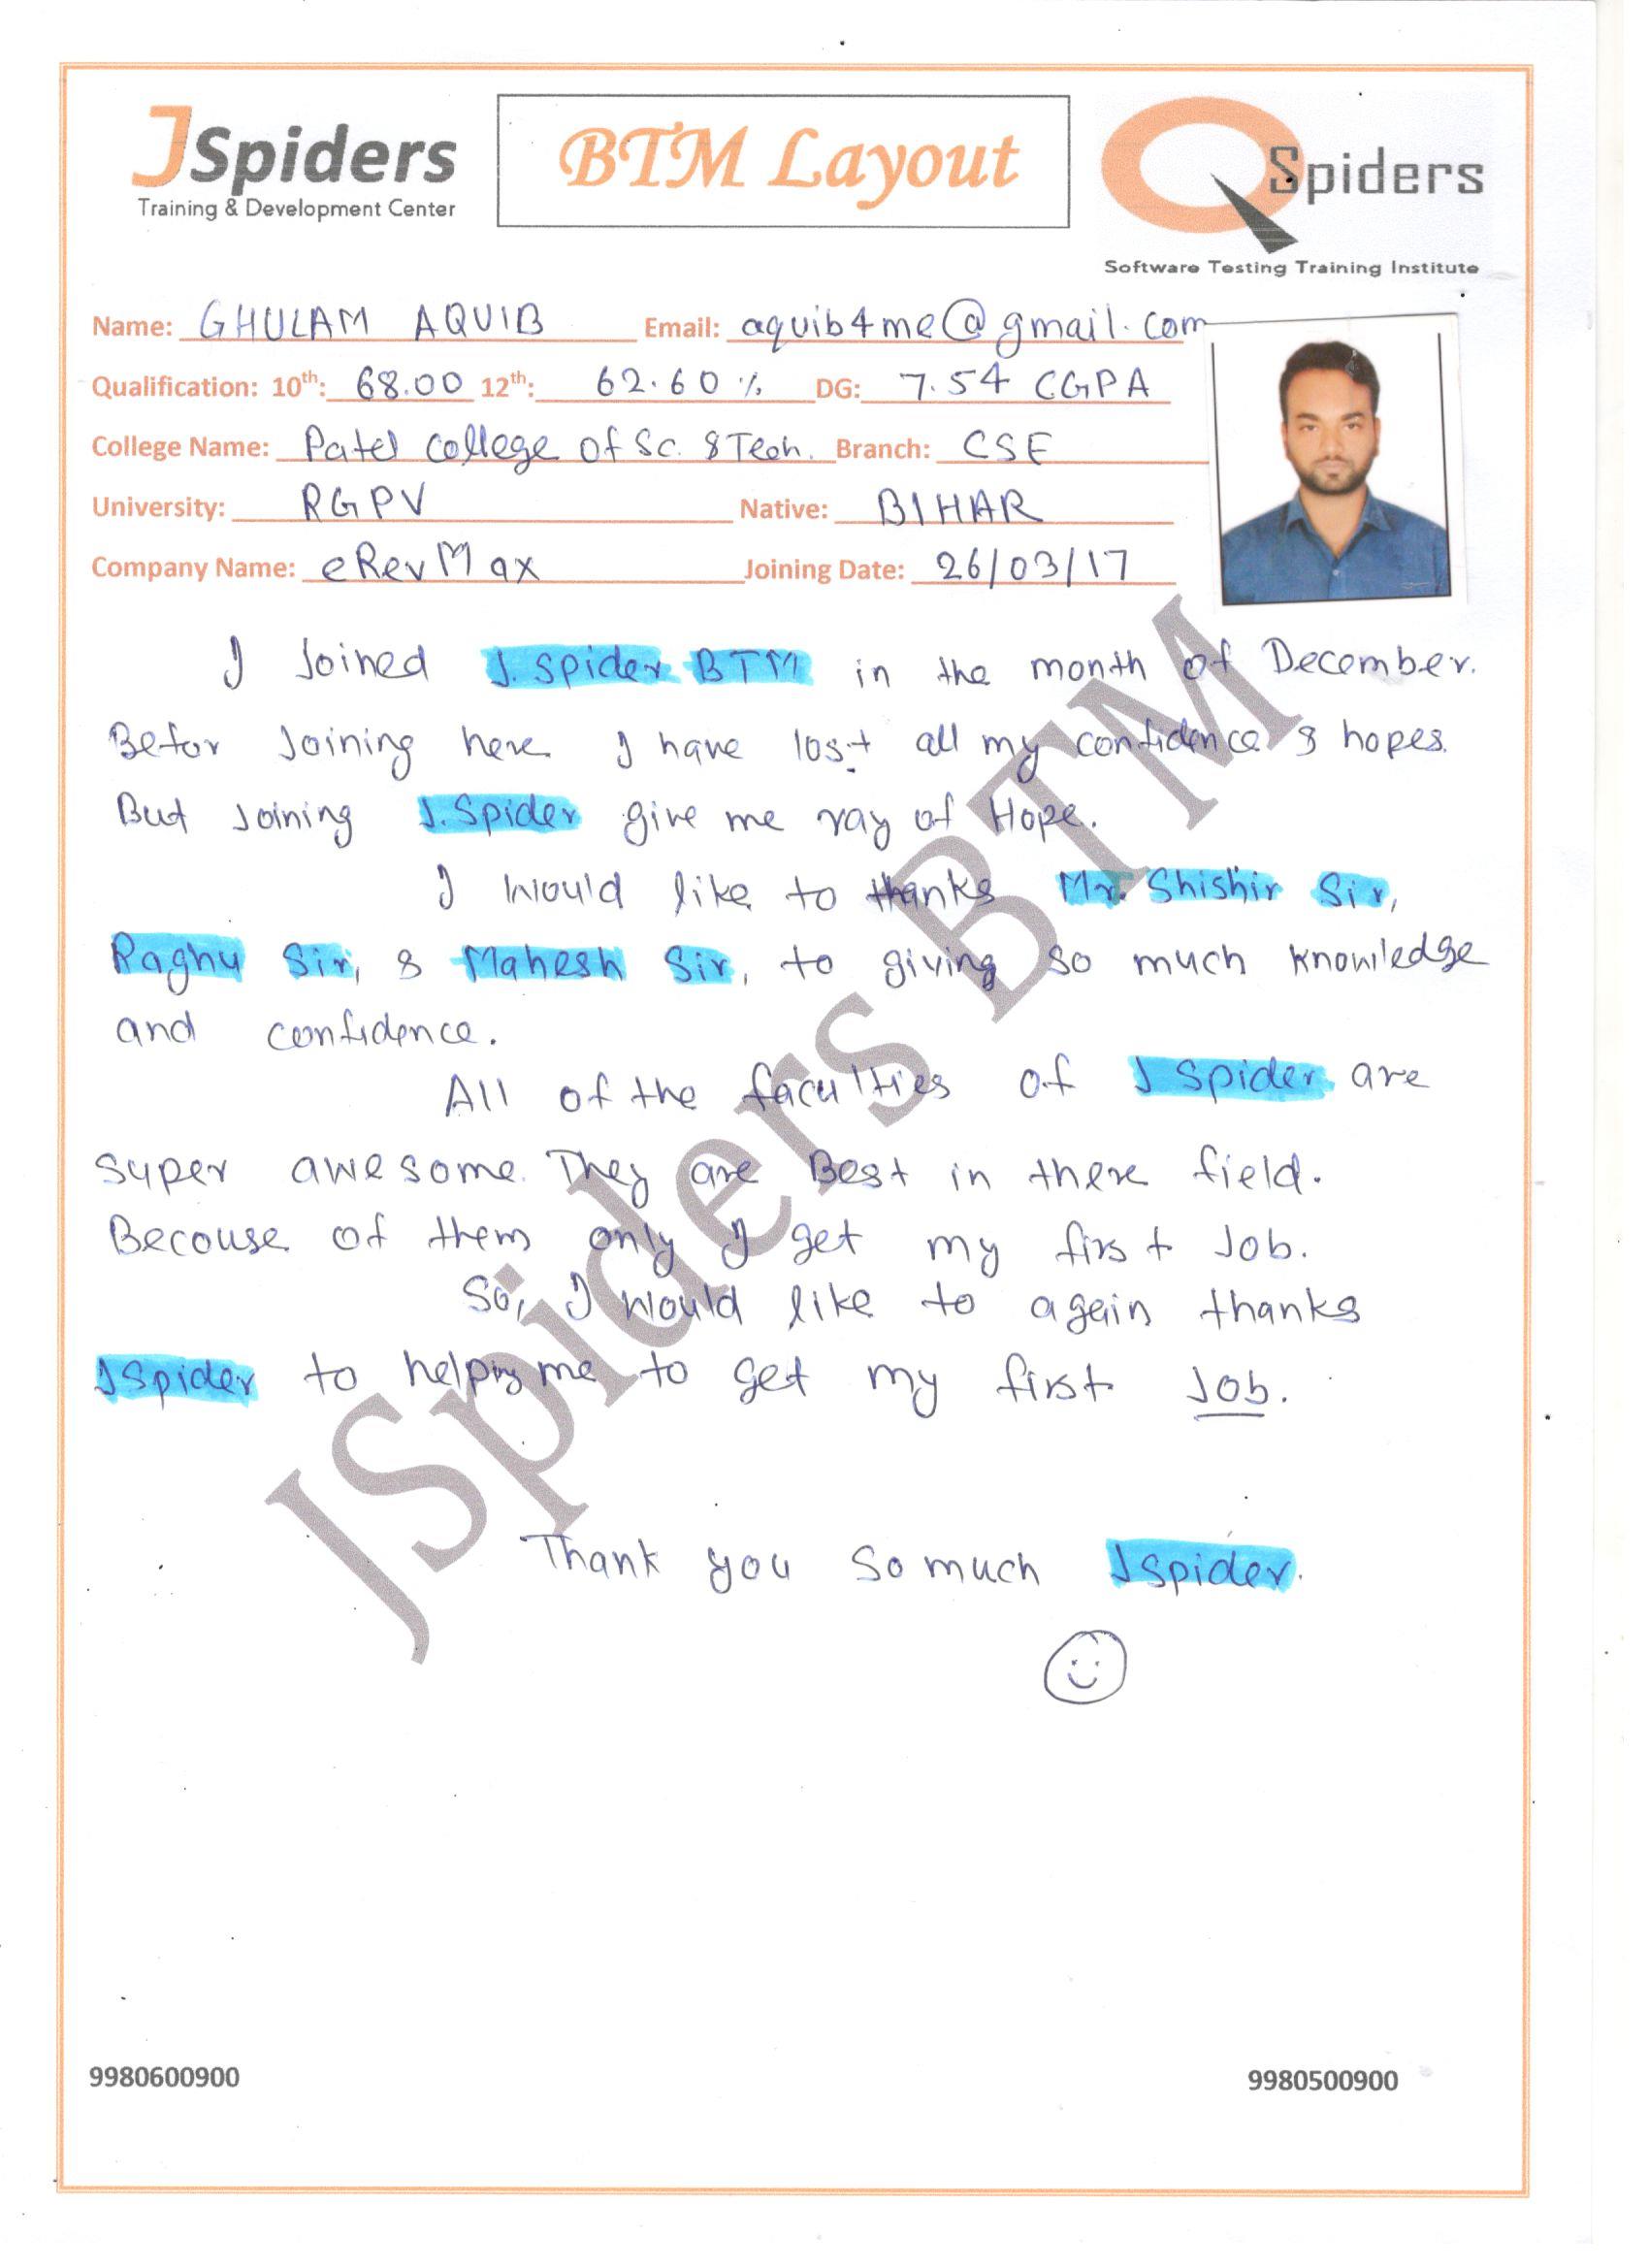 JSpiders
Training & Development Center
BTM Layout
QSpiders
Software Testing Training Institute
Name: GHULAM AQUIB Email: aquib4me@gmail.com
Qualification: 10th: 68.00 12th: 62.60 % DG: 7.54 CGPA
College Name: Patel College of Sc. & Tech. Branch: CSE
University: RGPV Native: BIHAR
Company Name: eRevMax Joining Date: 26/03/17
I Joined J. Spider BTM in the month of December.
Befor Joining here I have lost all my confidence & hopes.
But Joining J. Spider give me ray of Hope.
I would like to thanks Mr. Shishir Sir,
Raghu Sir, & Mahesh Sir, to giving so much knowledge
and confidence.
All of the faculties of J Spider are
super awesome. They are Best in there field.
Becouse of them only I get my first Job.
So, I would like to again thanks
JSpider to helping me to get my first Job.
Thank you so much Jspider.
JSpiders BTM
9980600900 9980500900